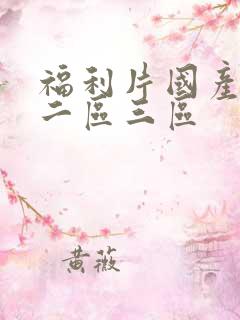 福利片國產
二區三區
黃薇